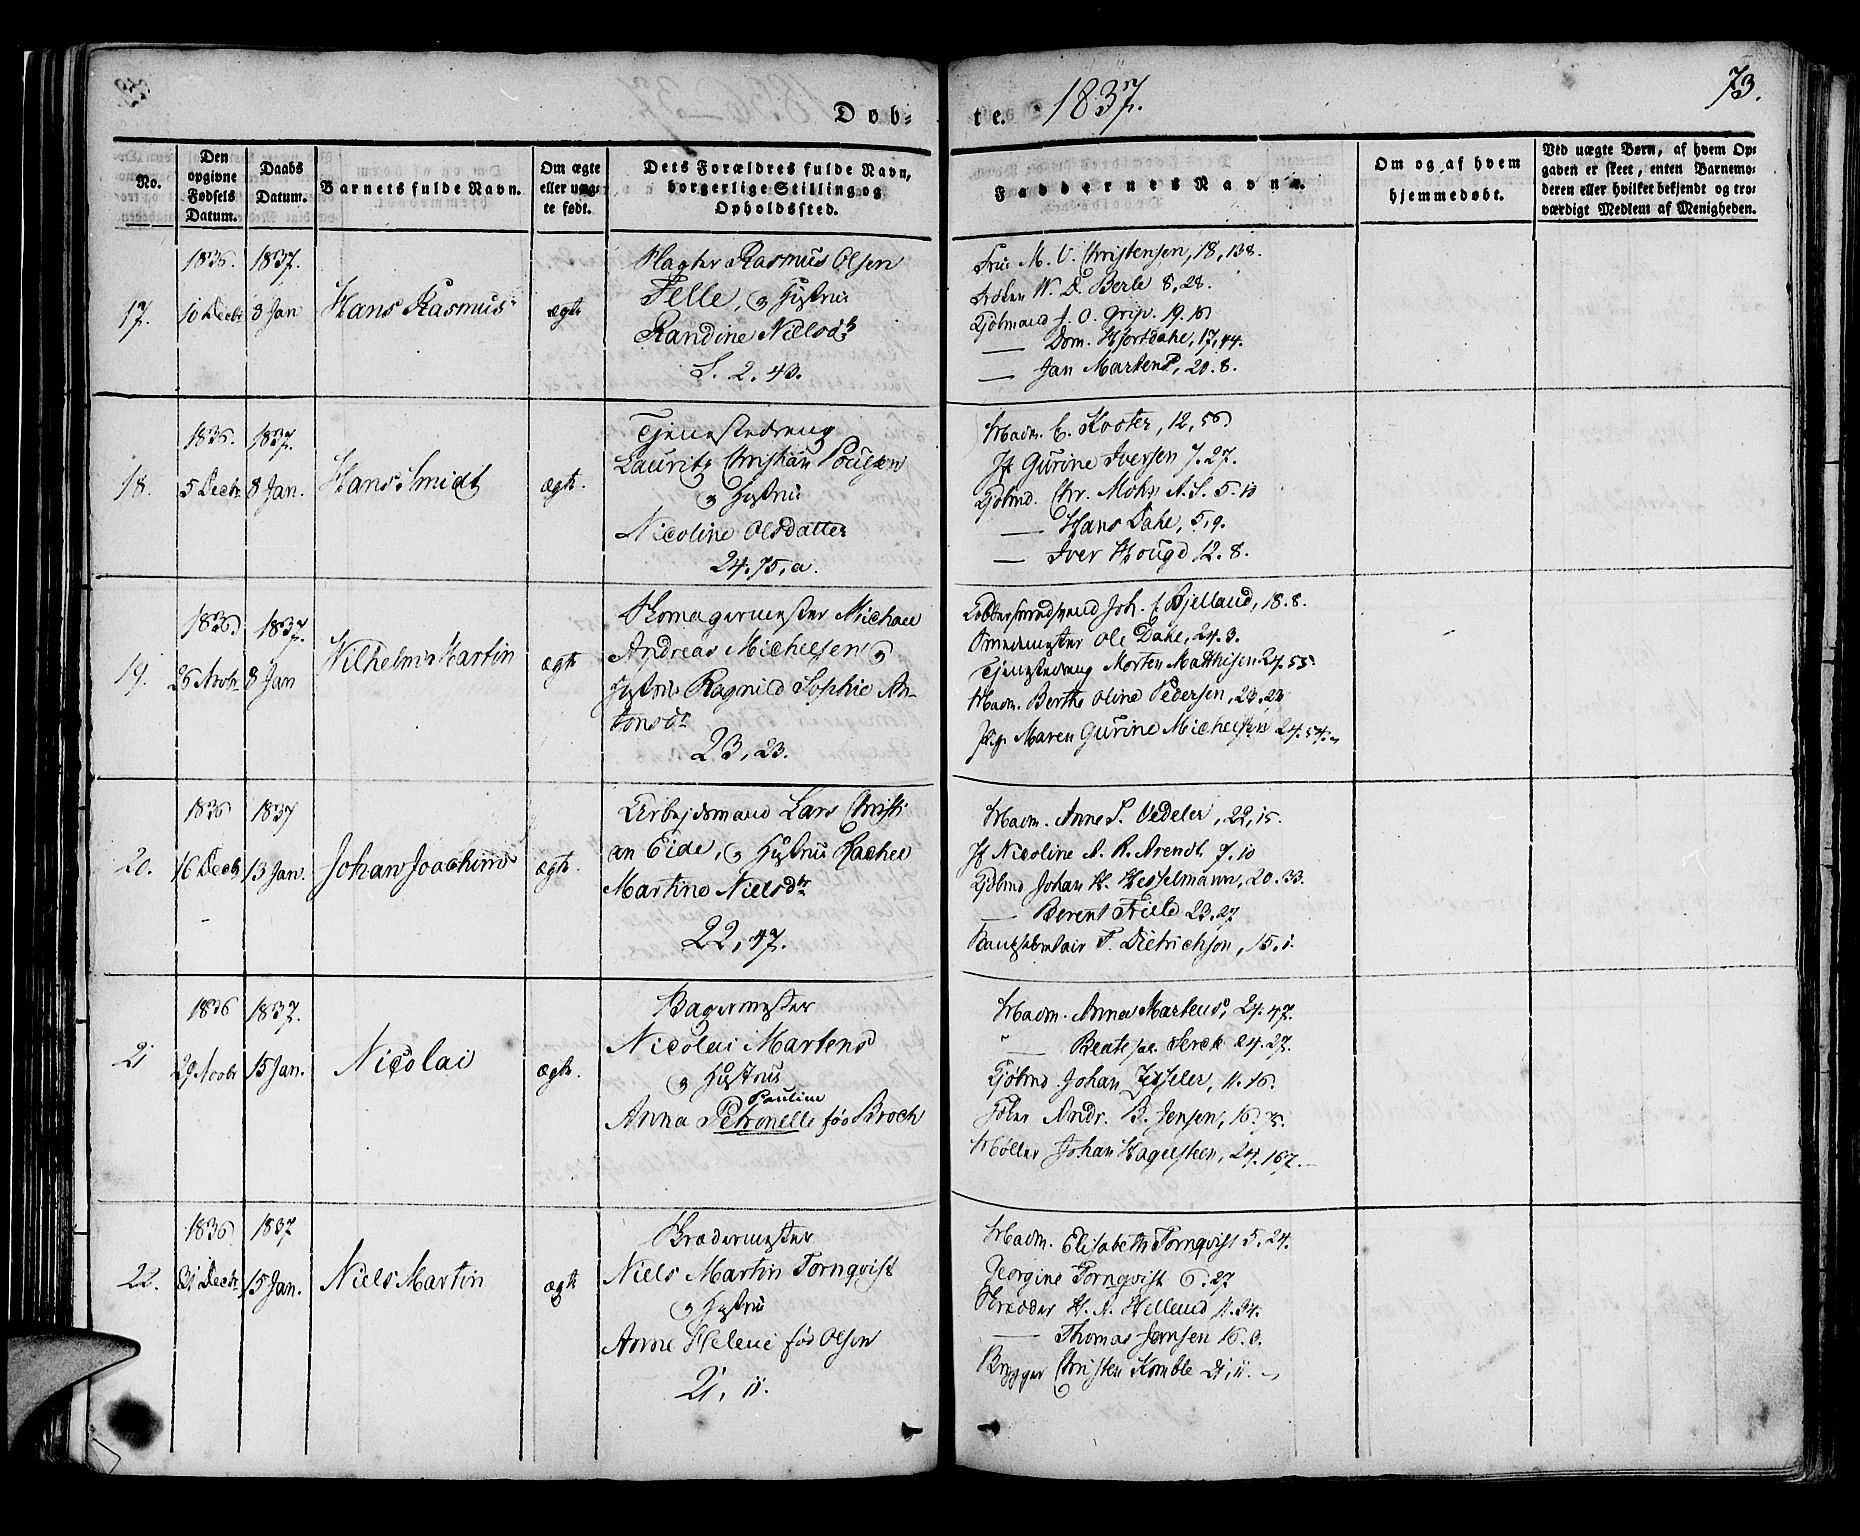 Døb-
te.
1837.
73.
No.
Den opgivne Fødsels Datum.
Daabs Datum.
Barnets fulde Navn.
Om ægte eller uæg-te født.
Dets Forældres fulde Navn, borgerlige Stilling og Opholdssted.
Faddernes Navne.
Om og af hvem hjemmedøbt.
Ved uægte Børn, af hvem Op-
gaven er skeet, enten Barnemo-
deren eller hvilket bekjendt og tro-
værdigt Medlem af Menigheden.
17.
1836.
10 Decbr
1837.
8 Jan
Hans Rasmus
ægte
Rasmus Olsen
Felle, og Hustrue
Randine Nielsdr
S. 2. 43.
Frue M. V. Christensen, 18, 138.
Frøken W. D. Berle 8, 28.
Kjøbmand J. O. Grip. 19. 16
— Dom. Hjortdahl, 17, 44.
— Jan Martens, 20. 8.
18.
1836.
5 Decbr
1837.
8 Jan.
Hans Smidt
ægte.
Tjenestedreng
Lauritz Christian Poulsen
og Hustrue
Nicoline Olsdatter
24. 75, a.
Madm. C. Koster, 12, 56
Jf Gurine Iversen 7. 27.
Kjøbmd. Chr. Mohn A.S. 5. 10
— Hans Dahl, 5, 9.
— Iver Hougd 12. 8.
19.
1836
26 Novbr
1837.
8 Jan
Wilhelm Martin
ægte
Skomagermester Michael
Andreas Michelsen og
Hustrue Ragnild Sophie An-
tonsdr
23, 23.
Kobbersmedsvend Joh. C. Bjelland, 18. 8.
Smedmester Ole Dahl, 24. 3.
Tjenestedreng Morten Matthisen 24. 55.
Madm. Berthe Oline Pedersen, 23, 23
Jfr Maren Gurine Michelsen 24. 54.
20.
1836
16 Decbr
1837
13 Jan.
Johan Joachim
ægte.
Arbejdsmand Lars Christi
an Eide, og Hustrue Rachel
Martine Nielsdr
22, 47.
Madm. Anne S. Vedeler, 22, 15.
Jf Nicoline A. R. Arendt, 7. 10
Kjøbmd Johan H. Hesselmann, 20. 33.
— Berent Friele 23. 27
T. Dietrichson, 15. 1.
21
1836
29 Novbr
1837.
15 Jan.
Nicolai
ægte.
Bagermester
Nicolai Martens
og Hustrue
Pauline
Anna Petronelle fød Broch
Madm. Anna Martens, 24. 47.
— Beate Serck 24. 27.
Kjøbmd Johan Fischer, 11. 16.
Andr. B. Jensen, 16. 75.
Møller Johan Hagelsteen, 24. 167.
22.
1836
31 Decbr
1837
15 Jan.
Niels Martin
ægte
Skrædermester
Niels Martin Tornqvist
og Hustrue
Anne Helene fød Olsen
21, 11.
Madm. Elisabeth Tornqvist 5. 24.
Georgine Tornqvist 6. 27
Skræder H. N. Helland 11. 34.
— Thomas Jansen 16. 0.
Brygger Christen Komble 21, 11.